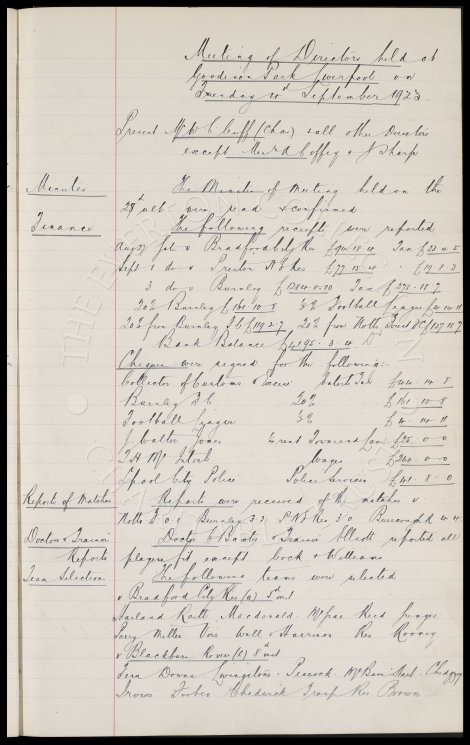 Meeting of Directors held at
Goodison Park Liverpool on
Tuesday 4th September 1923.
Present Mr W C Cuff (Chair) & all other Directors
except Messrs A Coffey & J Sharp
Minutes
The Minutes of meeting held on the
28th ult were read & confirmed
Finance
The following receipts were reported
Aug 27 Gate v Bradford City Res £94.18.4 Tax £23.4.5
Sept 1 do v Preston N E Res £77.15.4 £19.8.3
3 do v Burnley £1284.0.10 Tax £278.18.7
20% Burnley £161.10.8 Football League
20% from Burnley F C £119.2.7 20% from Notts Forest FC £127.10.7
Bank Balance £4195.3.4
Cheques were signed for the following:-
Collector of Customs & Excise £44.14.5
Burnley F C 20% £161.10.8
Football League
J Walter Jones 4 rent Townsend Lane £25.0.0
T. H. McIntosh Wages £240.0.0
Lpool City Police Police Services £41.8.0
Reports of Matches
Reports were received of the matches v
Notts F 0.1 Burnley 3.3 P N E Res 3.0 4.4
Doctors & Trainers
Reports
Doctor C Baxter & Trainer Elliott reported all
players fit except Cock & Williams
Team Selection
The following teams were selected
v Bradford City Res (a) 5th inst
Harland Raitt Macdonald McGrae Reid
Parry Miller Weir Wall & Harrison Res Rooney
v Blackburn Rovers (a) 8th inst
Fern Downs Livingstone Peacock McBain Hart Chedgzoy
Irvine Forbes Chadwick Troup Res Brown